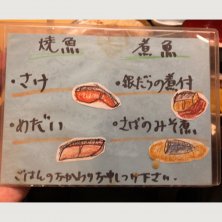 焼魚 煮魚
・さけ ・銀だらの煮付
・めだい ・さばのみそ煮
ごはんのおかわりお申しつけ下さい.